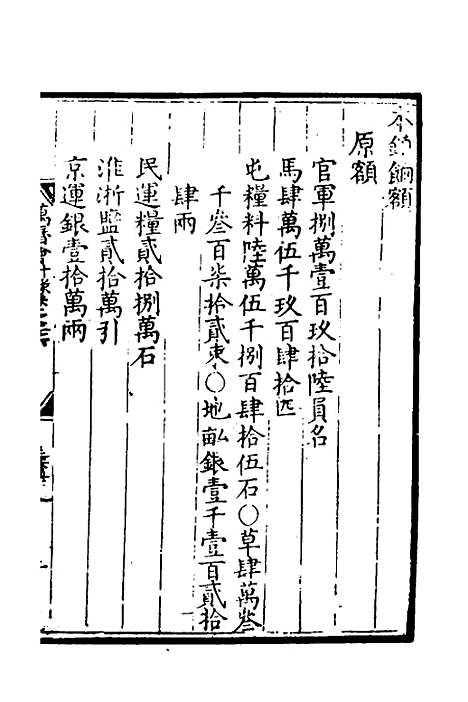 本鎮餉額
原額
官軍捌萬壹百玖拾陸員名
馬肆萬伍千玖百肆拾匹
屯糧料陸萬伍千捌百肆拾伍石○草肆萬叁
千叁百柒拾貳束○地畝銀壹千壹百貳拾
肆兩
民運糧貳拾捌萬石
淮浙鹽貳拾萬引
京運銀壹拾萬兩
萬曆會計錄卷之